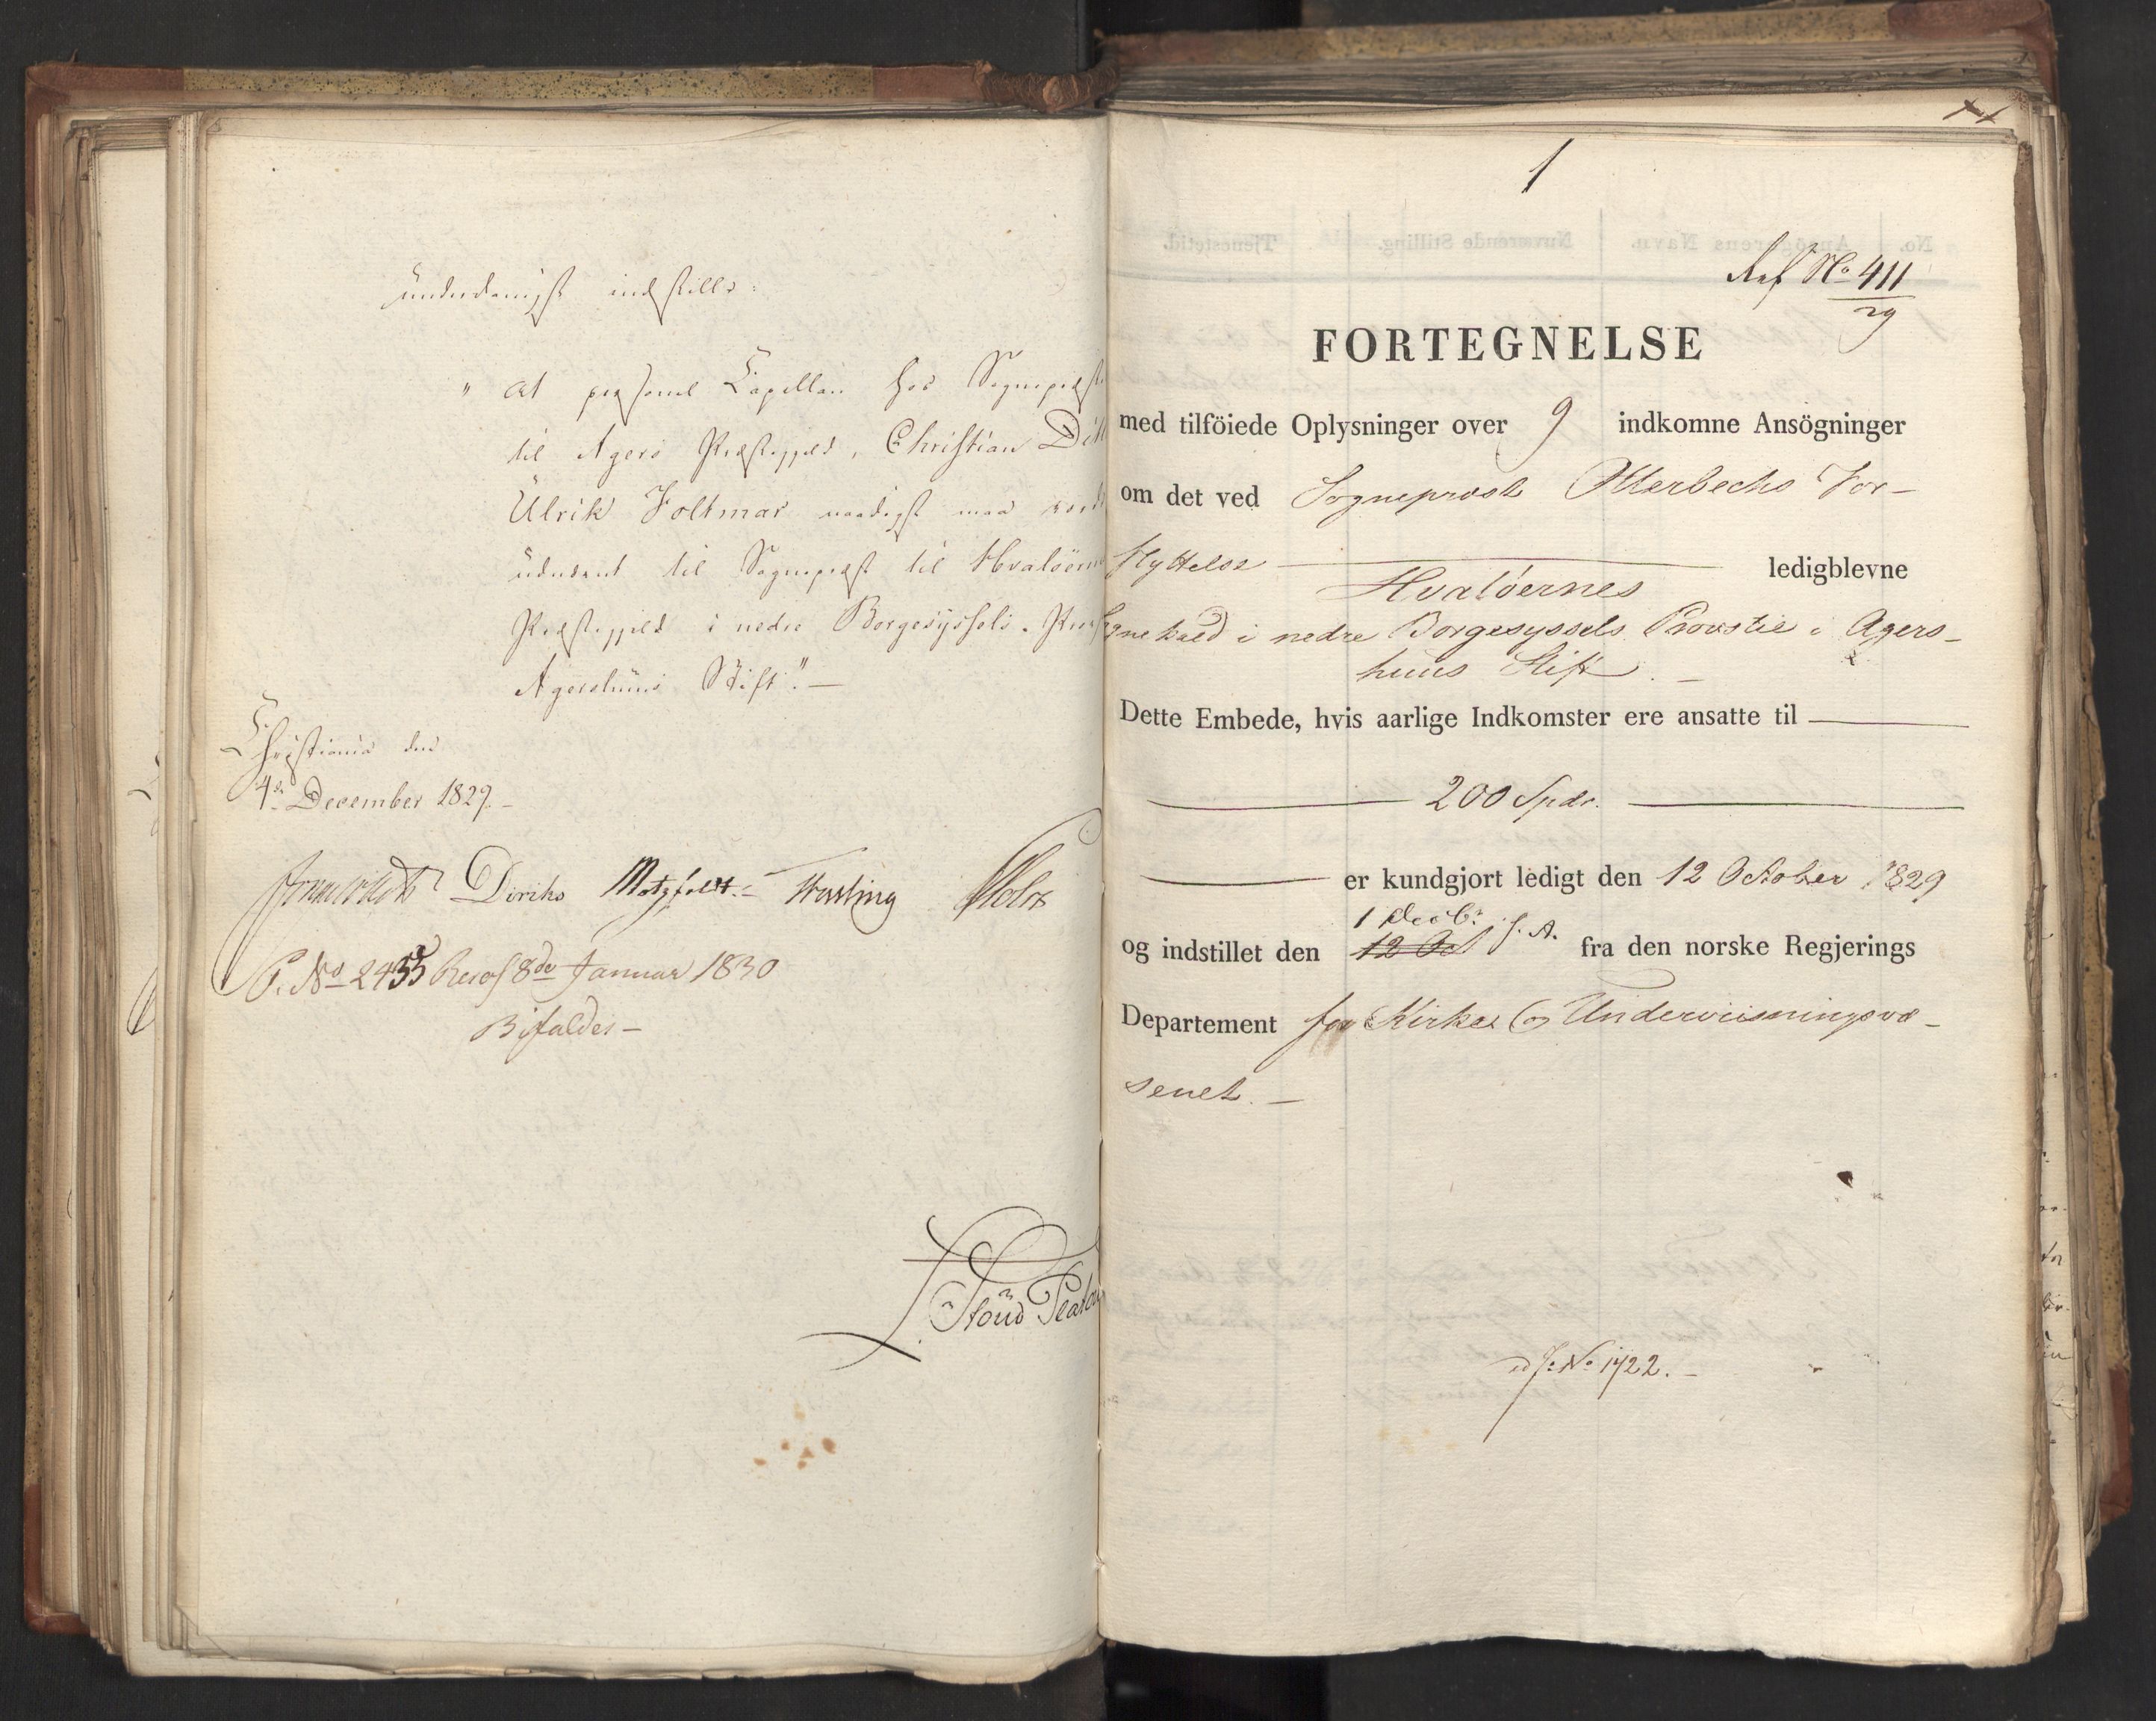 underdanigst indstille:
" At personel Capellan hos Sognepræst
til Agers Præstegjeld, Christian
Ulrik Foltmar naadigst maa
udnævnt til Sognepræst til Hvaløern
Præstegjeld i nedre Borgesyssels
Agershuus Stift". —
Christiania den
4de December 1829. —
Diriks Motzfeldt. Fasting Holst
P. No 2435 Resol 8de Januar 1830
Bifaldes —
1
Ref No 411
29
FORTEGNELSE
med tilföiede Oplysninger over 9 indkomne Ansögninger
om det ved Sogneprest Otterbechs For-
flyttelse — ledigblevne
Hvaløernes
Sognekald i nedre Borgesyssels Provstie i Agers-
huus Stift. —
Dette Embede, hvis aarlige Indkomster ere ansatte til —
— 200 Spdr. —
— er kundgjort ledigt den 12 October 1829
1 Decbr.
og indstillet den 12 Oct f. A. fra den norske Regjerings
Departement for Kirke og Underviisningsvæ-
senet. —
J. No 1722. —